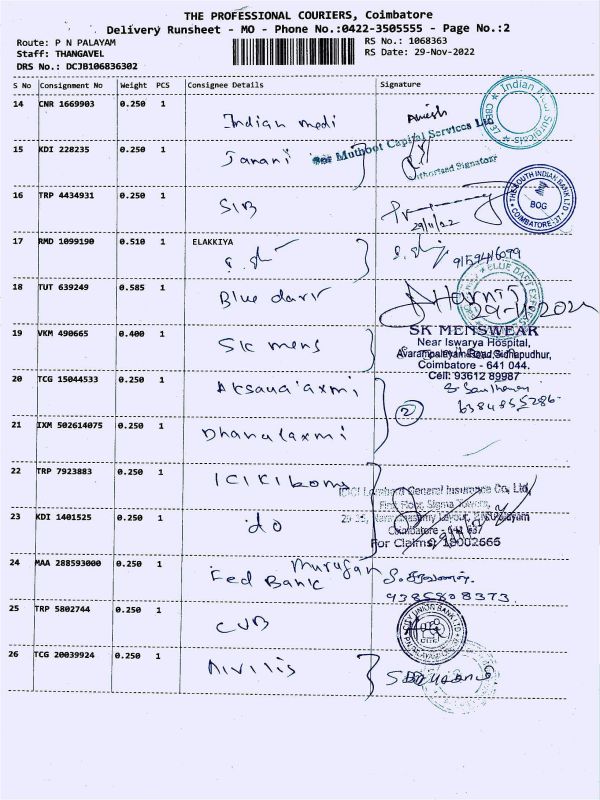 THE PROFESSIONAL COURIERS, Coimbatore
Delivery Runsheet - MO - Phone No.:0422-3505555 - Page No.:2
Route: P N PALAYAM
RS No.: 1068363
Staff: THANGAVEL
RS Date: 29-Nov-2022
DRS No.: DCJB106836302
S No Consignment No Weight PCS Consignee Details Signature
14 CNR 1669903 0.250 1 Indian medi
15 KDI 228235 0.250 1 Janani
for Muthoot Capital Services Ltd
Authorised Signatory
16 TRP 4434931 0.250 1 SIB
29/11/22
THE SOUTH INDIAN BANK LTD
BOG
COIMBATORE-37
17 RMD 1099190 0.510 1 ELAKKIYA
18 TUT 639249 0.585 1 Blue dart
BLUE DART EXPRESS
19 VKM 490665 0.400 1 SK mens
SK MENSWEAR
Near Iswarya Hospital,
Avarampalayam Road, Sidhapudhur,
Coimbatore - 641 044.
Cell: 93612 89987
20 TCG 15044533 0.250 1
2
21 IXM 502614075 0.250 1 Dhanalaxmi
22 TRP 7923883 0.250 1
ICICI Lombard General Insurance Co, Ltd,
First Floor, Sigma Towers,
23 KDI 1401525 0.250 1 do
For Claims: 18002666
24 MAA 288593000 0.250 1 Murugan
Fed Bank
9385808373.
25 TRP 5802744 0.250 1 CUB
CITY UNION BANK LTD
26 TCG 20039924 0.250 1